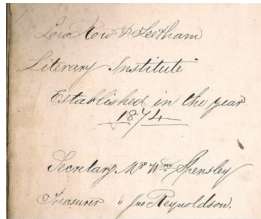 Low Row & Feetham
Literary Institute
Established in the year
1874
Secretary Mr Wm Spensley
Treasurer " Jno Reynoldson.